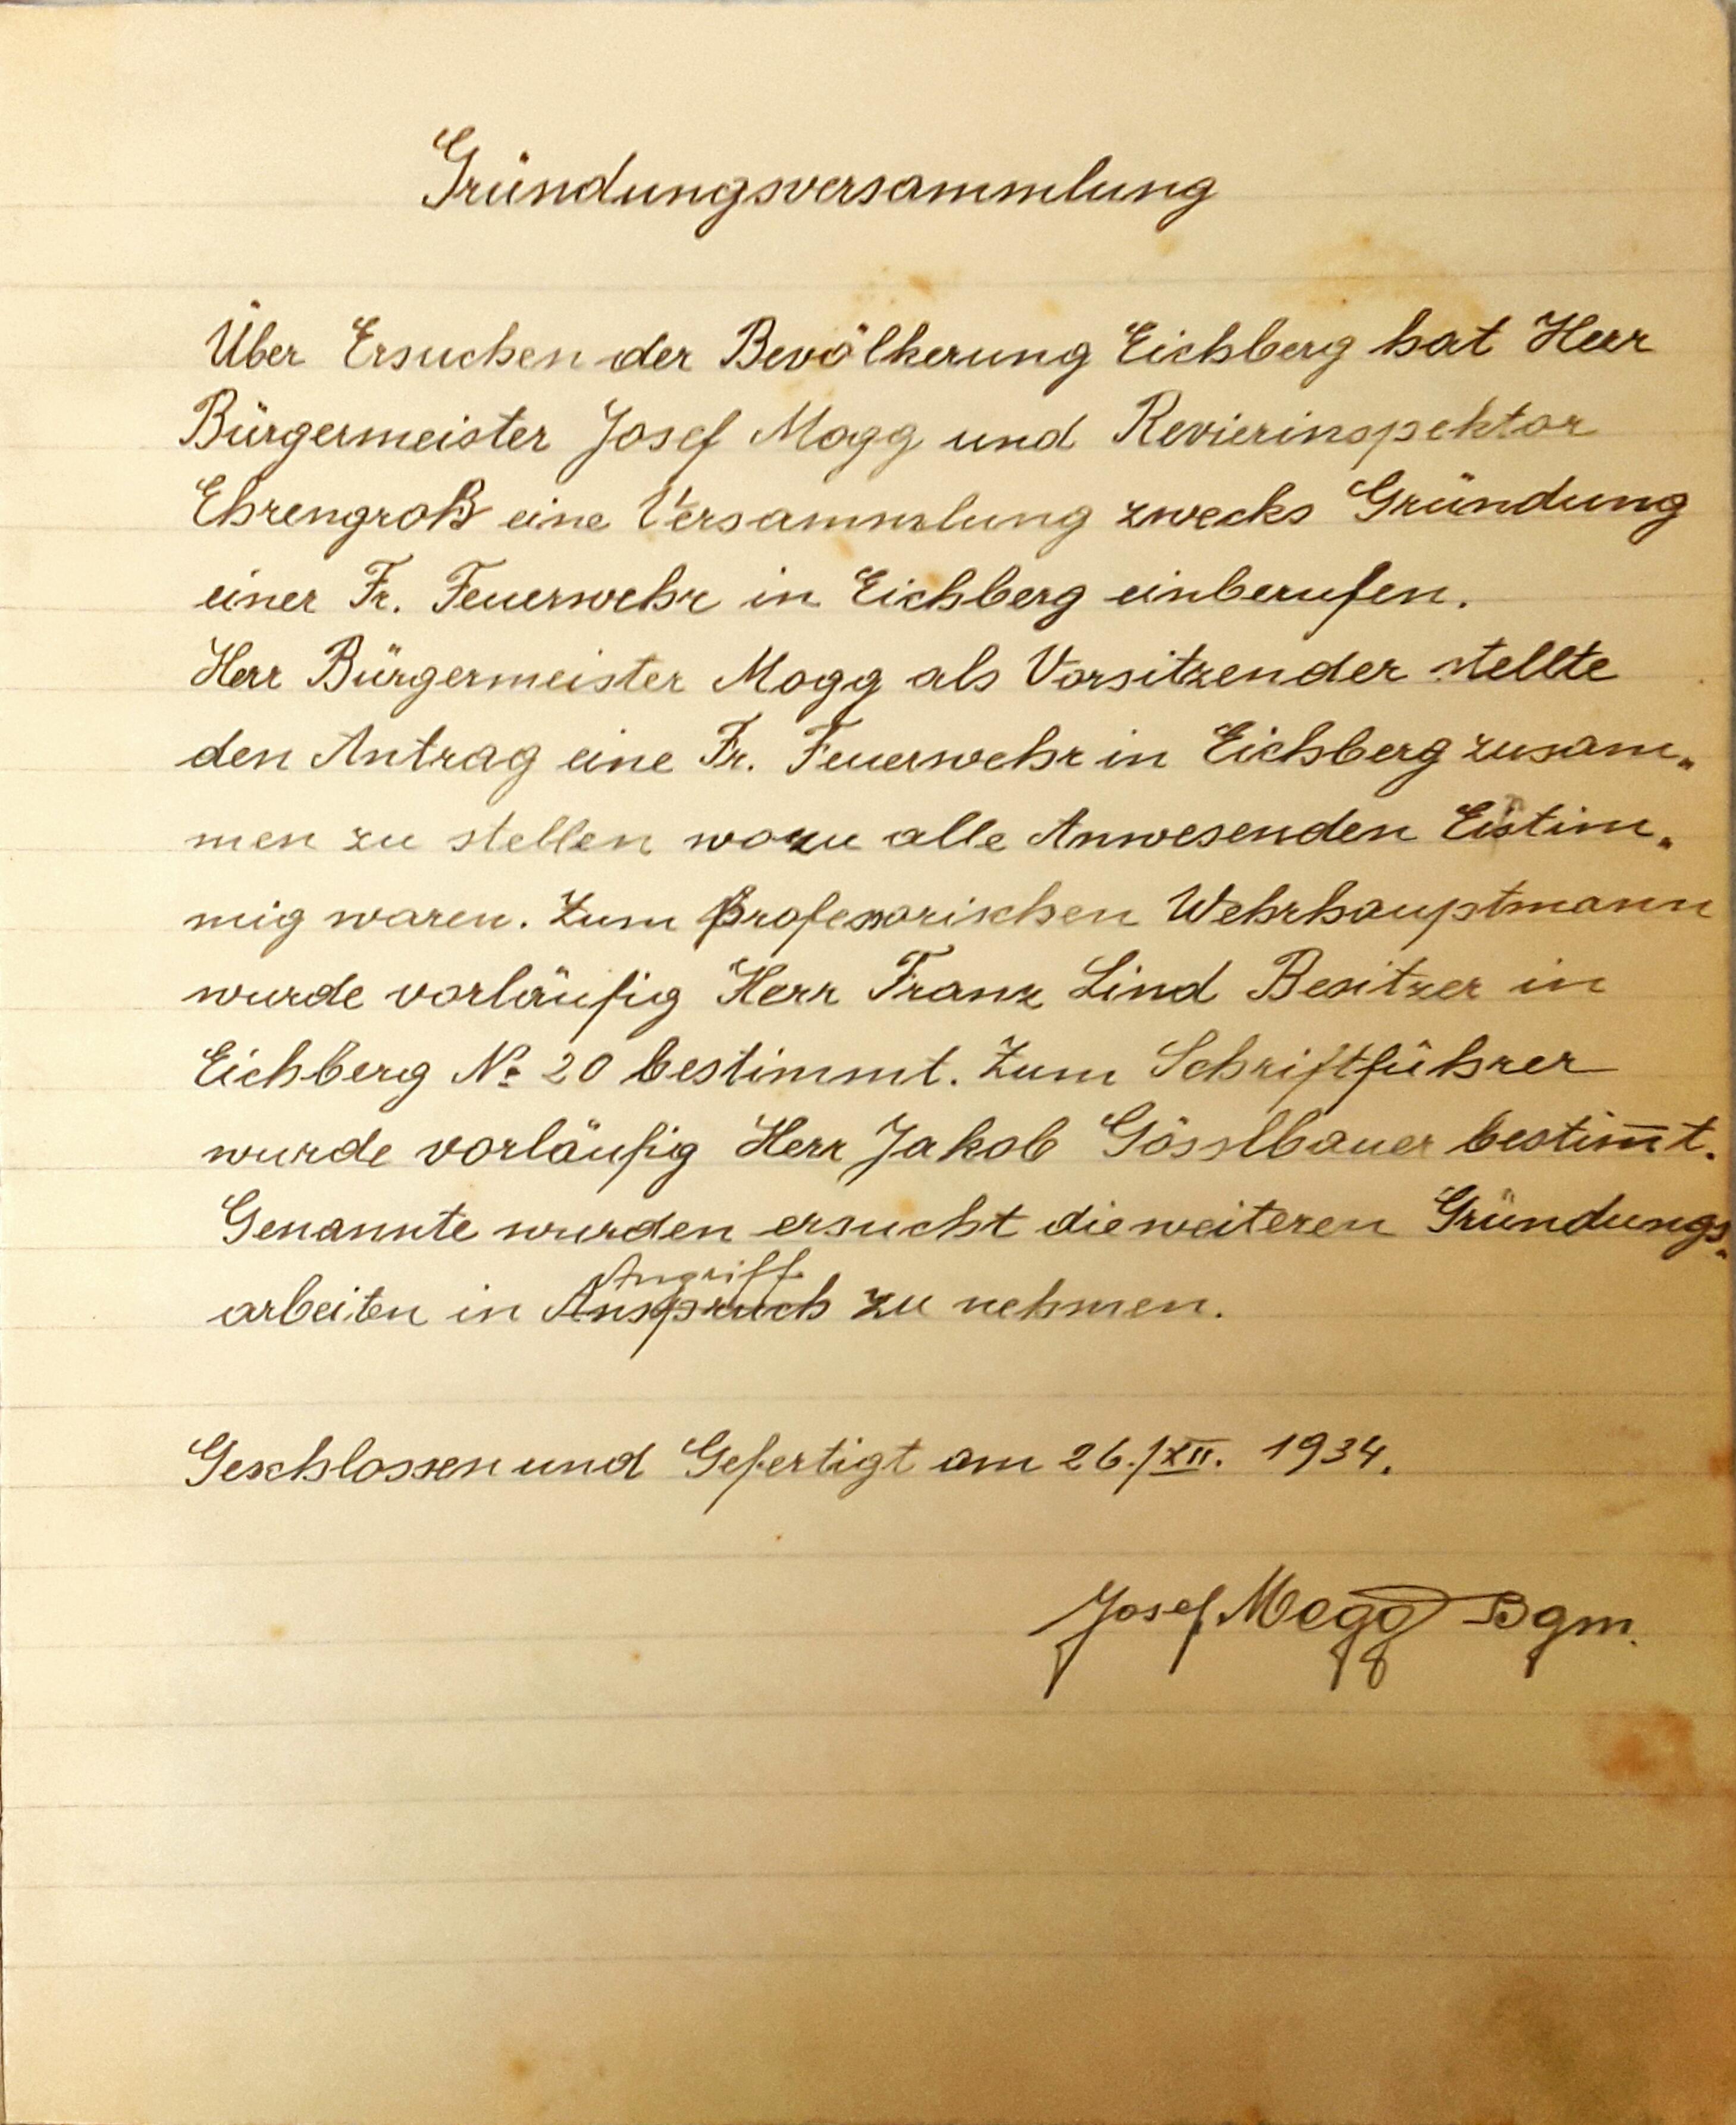 Gründungsversammlung
Über Ersuchen der Bevölkerung Eichberg hat Herr
Bürgermeister Josef Mogg und Revierinspektor
Ehrengroß eine Versammlung zwecks Gründung
einer Fr. Feuerwehr in Eichberg einberufen.
Herr Bürgermeister Mogg als Vorsitzender stellte
den Antrag eine Fr. Feuerwehr in Eichberg zusam„
men zu stellen wozu alle Anwesenden Eistim„
mig waren. Zum Profesorischen Wehrhauptmann
wurde vorläufig Herr Franz Lind Besitzer in
Eichberg No 20 bestimmt. Zum Schriftführer
wurde vorläufig Herr Jakob Gösslbauer bestim̅t.
Genannte wurden ersucht die weiteren Gründungs„
Angriff
arbeiten in Anspruch zu nehmen.
Geschlossen und Gefertigt am 26./XII. 1934.
Josef Mogg Bgm.